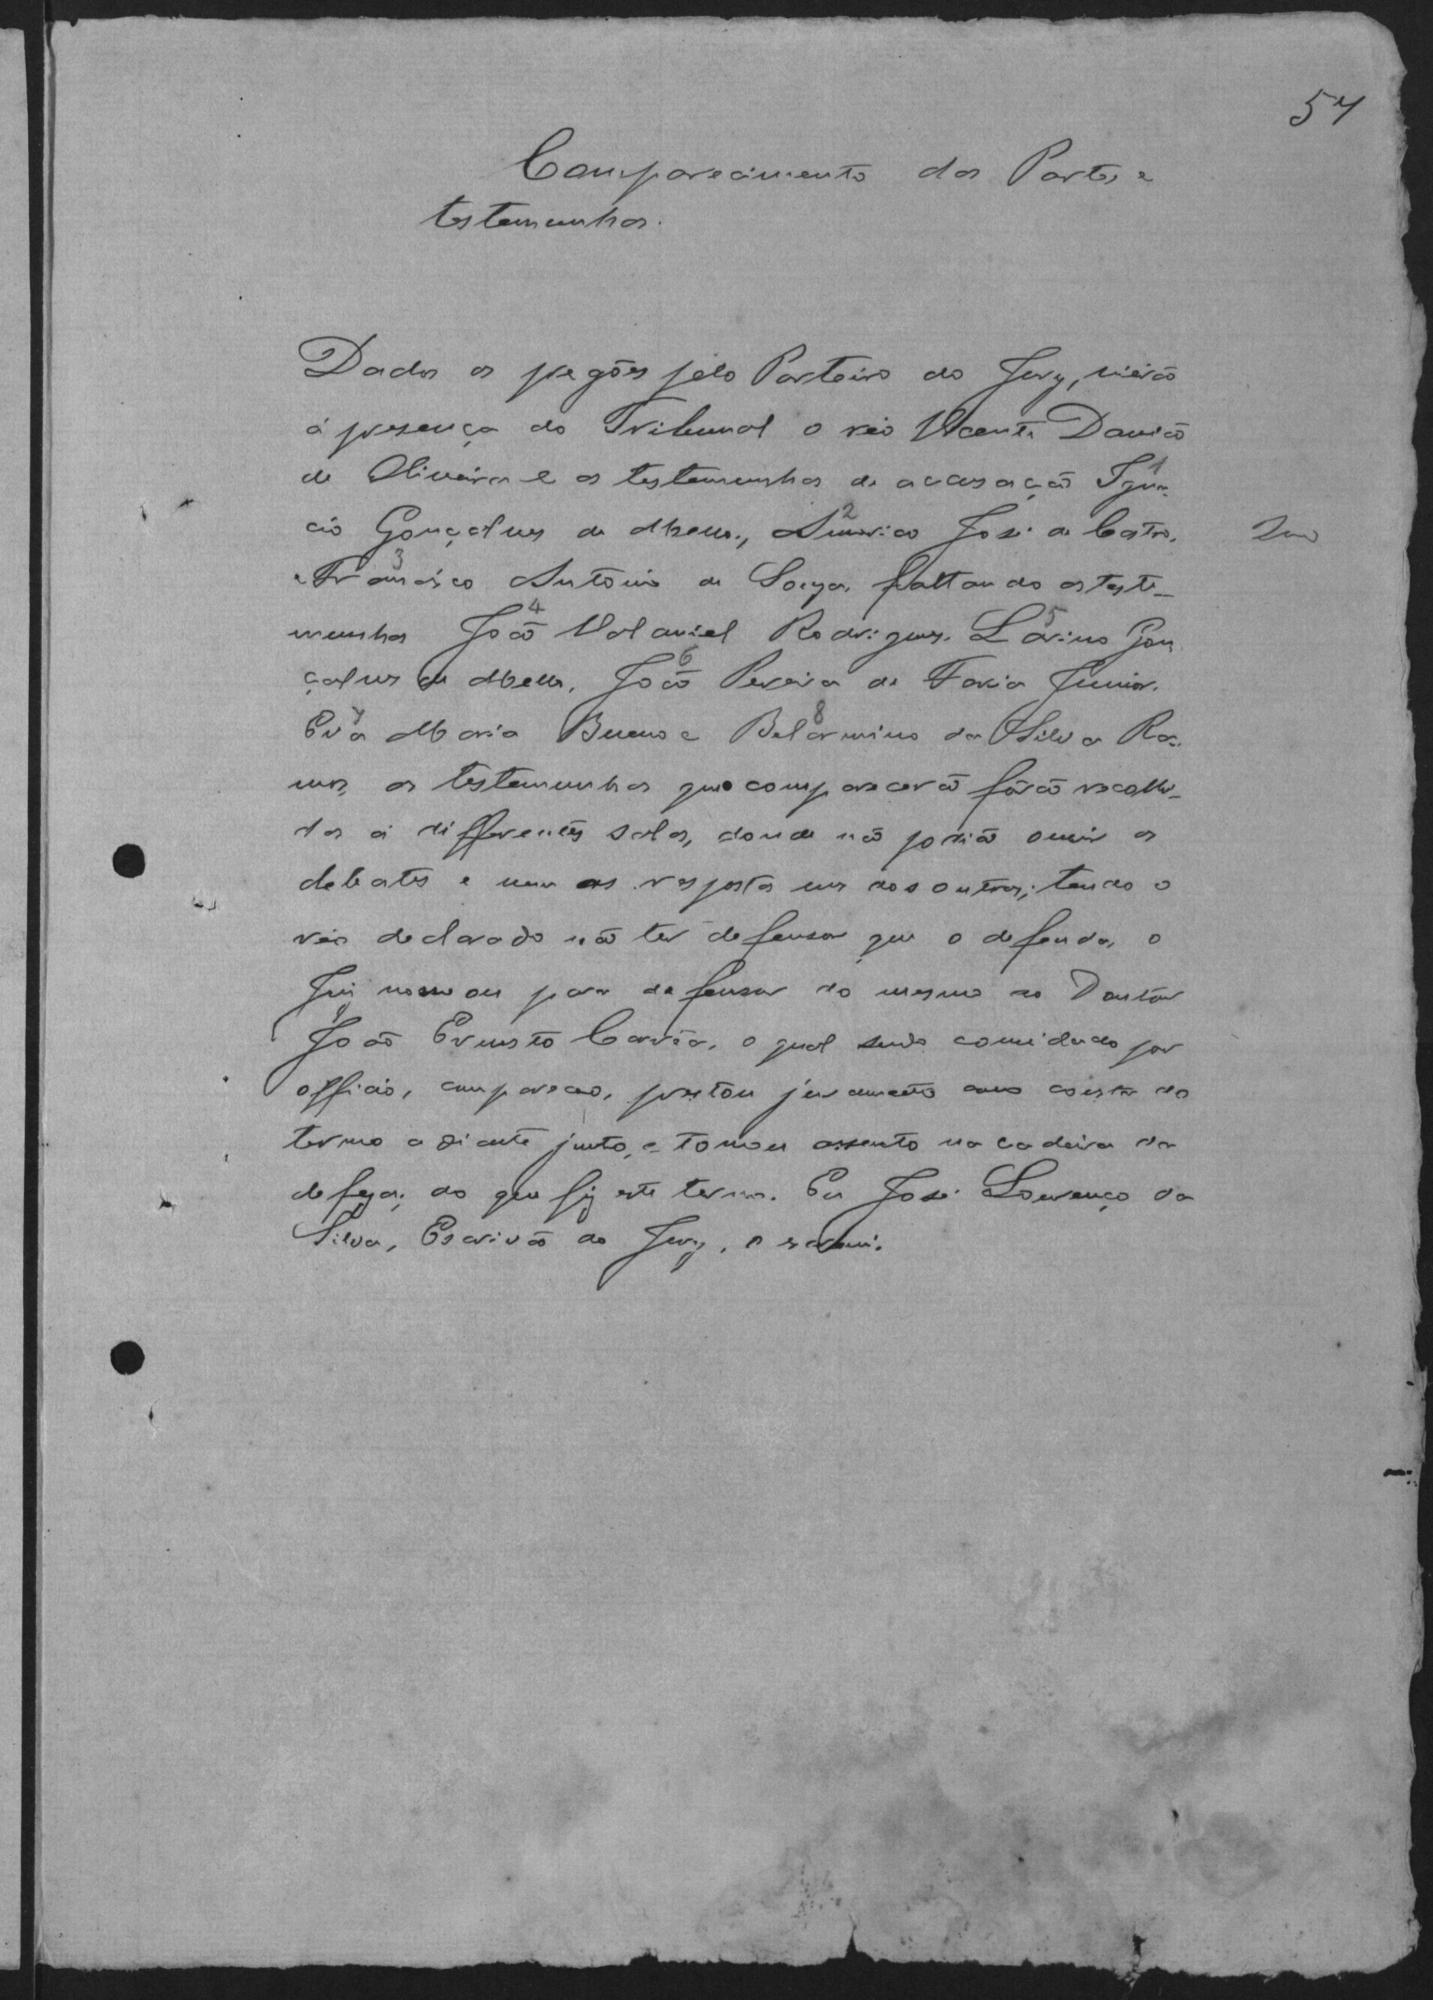 57
Comparecimento das Partes e
testemunhas.
Dados os pregões pelo Porteiro do Jury, vierão
á presença do Tribunal o reo Vicente Damião
de Oliveira e as testemunhas de accusação Igna-
1
cio Gonçalves de Mello, Americo José de Castro,
2
e Francisco Antonio de Souza, faltando as teste-
3
munhas João Rodrigues, Larino Gon
4 5
çalves de Mello, João Pereira de Faria Junior,
6
Eva Maria Bueno e Belarmino da Silva Ra-
7 8
mos, as testemunhas que comparecerão fôrão recolhi-
das á differentes salas, donde não podião ouvir os
debates e nem as respostas uns dos outros; tendo o
réo declarado não ter defensor que o defenda, o
Juiz nomeou para defensor do mesmo ao Doutor
João Ernesto Corrêa, o qual sendo convidado por
officio, compareceo, prestou juramento como consta do
termo adiante junto, e tomou assento na cadeira da
defeza; do que fiz este termo. Eu José Lourenço da
Silva, Escrivão do Jury, o escrevi.